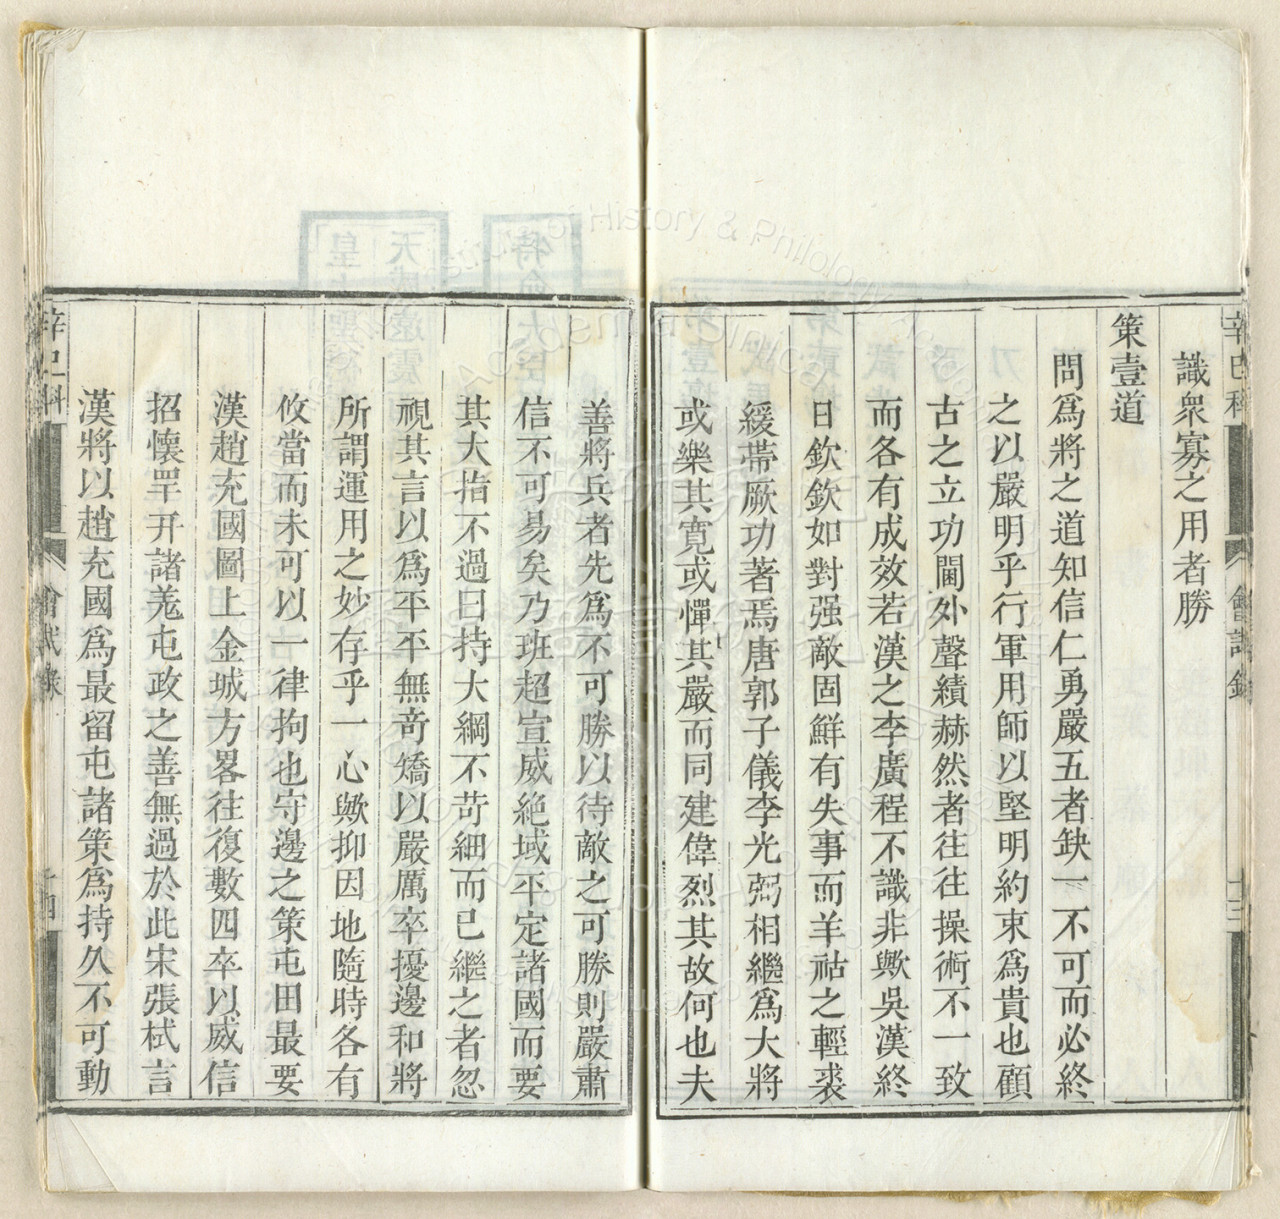 辛巳科 會試錄 十三
識衆寡之用者勝
策壹道
問爲將之道知信仁勇嚴五者缺一不可而必終
之以嚴明乎行軍用師以堅明約束爲貴也顧
古之立功閫外聲績赫然者往往操術不一致
而各有成效若漢之李廣程不識非歟吳漢終
日欽欽如對强敵固鮮有失事而羊祜之輕裘
緩帶厥功著焉唐郭子儀李光弼相繼爲大將
或樂其寬或憚其嚴而同建偉烈其故何也夫
善將兵者先爲不可勝以待敵之可勝則嚴肅
信不可易矣乃班超宣威絶域平定諸國而要
其大指不過曰持大綱不苛細而已繼之者忽
視其言以爲平平無奇矯以嚴厲卒擾邊和將
所謂運用之妙存乎一心歟抑因地隨時各有
攸當而未可以一律拘也守邊之策屯田最要
漢趙充國圖上金城方畧往復數四卒以威信
招懷罕幵諸羌屯政之善無過於此宋張栻言
漢將以趙充國爲最留屯諸策爲持久不可動
辛巳科 會試錄 十四